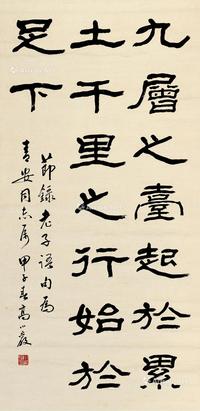 九層之臺起於累
土千里之行始於
足下
節錄老子語句為
青安同志屬 甲子春高小岩